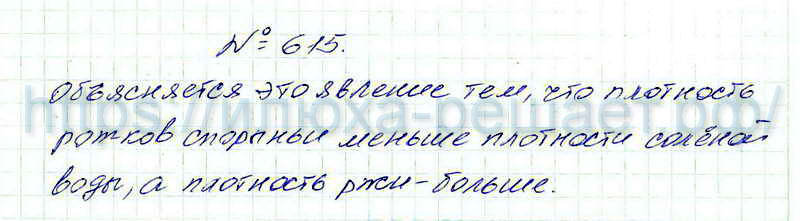 № 615.
Объясняется это явление тем, что плотность
рожков спорыньи меньше плотности солёной
воды, а плотность ржи - больше.
https://илюха-решает.рф/